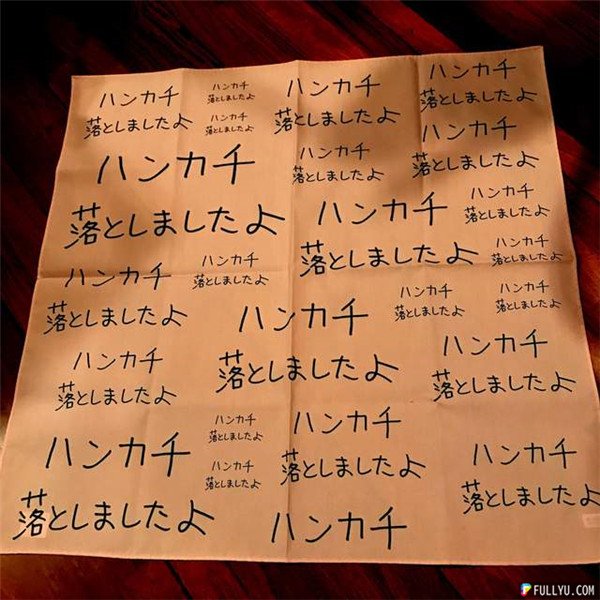 ハンカチ
落としましたよ
ハンカチ
落としましたよ
ハンカチ
落としましたよ
ハンカチ
落としましたよ
ハンカチ
落としましたよ
ハンカチ
落としましたよ
ハンカチ
落としましたよ
ハンカチ
落としましたよ
ハンカチ
落としましたよ
ハンカチ
落としましたよ
ハンカチ
落としましたよ
ハンカチ
落としましたよ
ハンカチ
落としましたよ
ハンカチ
落としましたよ
ハンカチ
落としましたよ
ハンカチ
落としましたよ
ハンカチ
落としましたよ
ハンカチ
落としましたよ
ハンカチ
落としましたよ
ハンカチ
落としましたよ
ハンカチ
落としましたよ
ハンカチ
落としましたよ
ハンカチ
落としましたよ
ハンカチ
FULLYU.COM